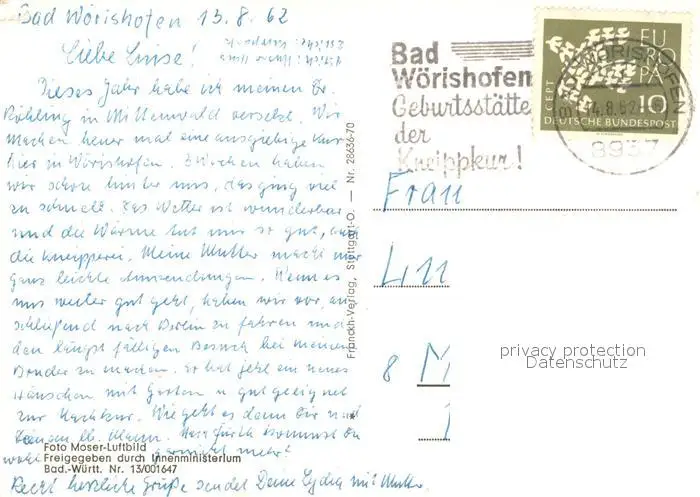 Bad Wörishofen 13.8.62
Liebe Luise!
Dieses Jahr habe ich meinen Dr.
Röhling in Mittenwald versetzt. Wir
machen heuer mal eine ausgiebige Kur
hier in Wörishofen. 3 Wochen haben
wir schon hinter uns, das ging viel
zu schnell. Das Wetter ist wunderbar
und die Wärme tut uns so gut, auch
die Kneipperei. Meine Mutter macht nur
ganz leichte Anwendungen. Wenn es
uns weiter gut geht, haben wir vor, an-
schließend nach Berlin zu fahren und
den längst fälligen Besuch bei meinem
Bruder zu machen. Er hat jetzt ein neues
Häuschen mit Garten u. gut geeignet
zur Nachkur. Wie geht es denn Dir und
Deinem lb. Mann. Nach Fürth kommst Du
wohl garnicht mehr?
Recht herzliche Grüße sendet Deine Lydia mit Mutter.
Foto Moser-Luftbild
Freigegeben durch Innenministerium
Bad.-Württ. Nr. 13/001647
Franckh-Verlag, Stuttgart-O. — Nr. 28636-70
Bad
Wörishofen
Geburtsstätte
der
Kneippkur!
EUROPA
CEPT
10
DEUTSCHE BUNDESPOST
WÖRISHOFEN
14.8.62
8937
Frau
8 M
privacy protection
Datenschutz